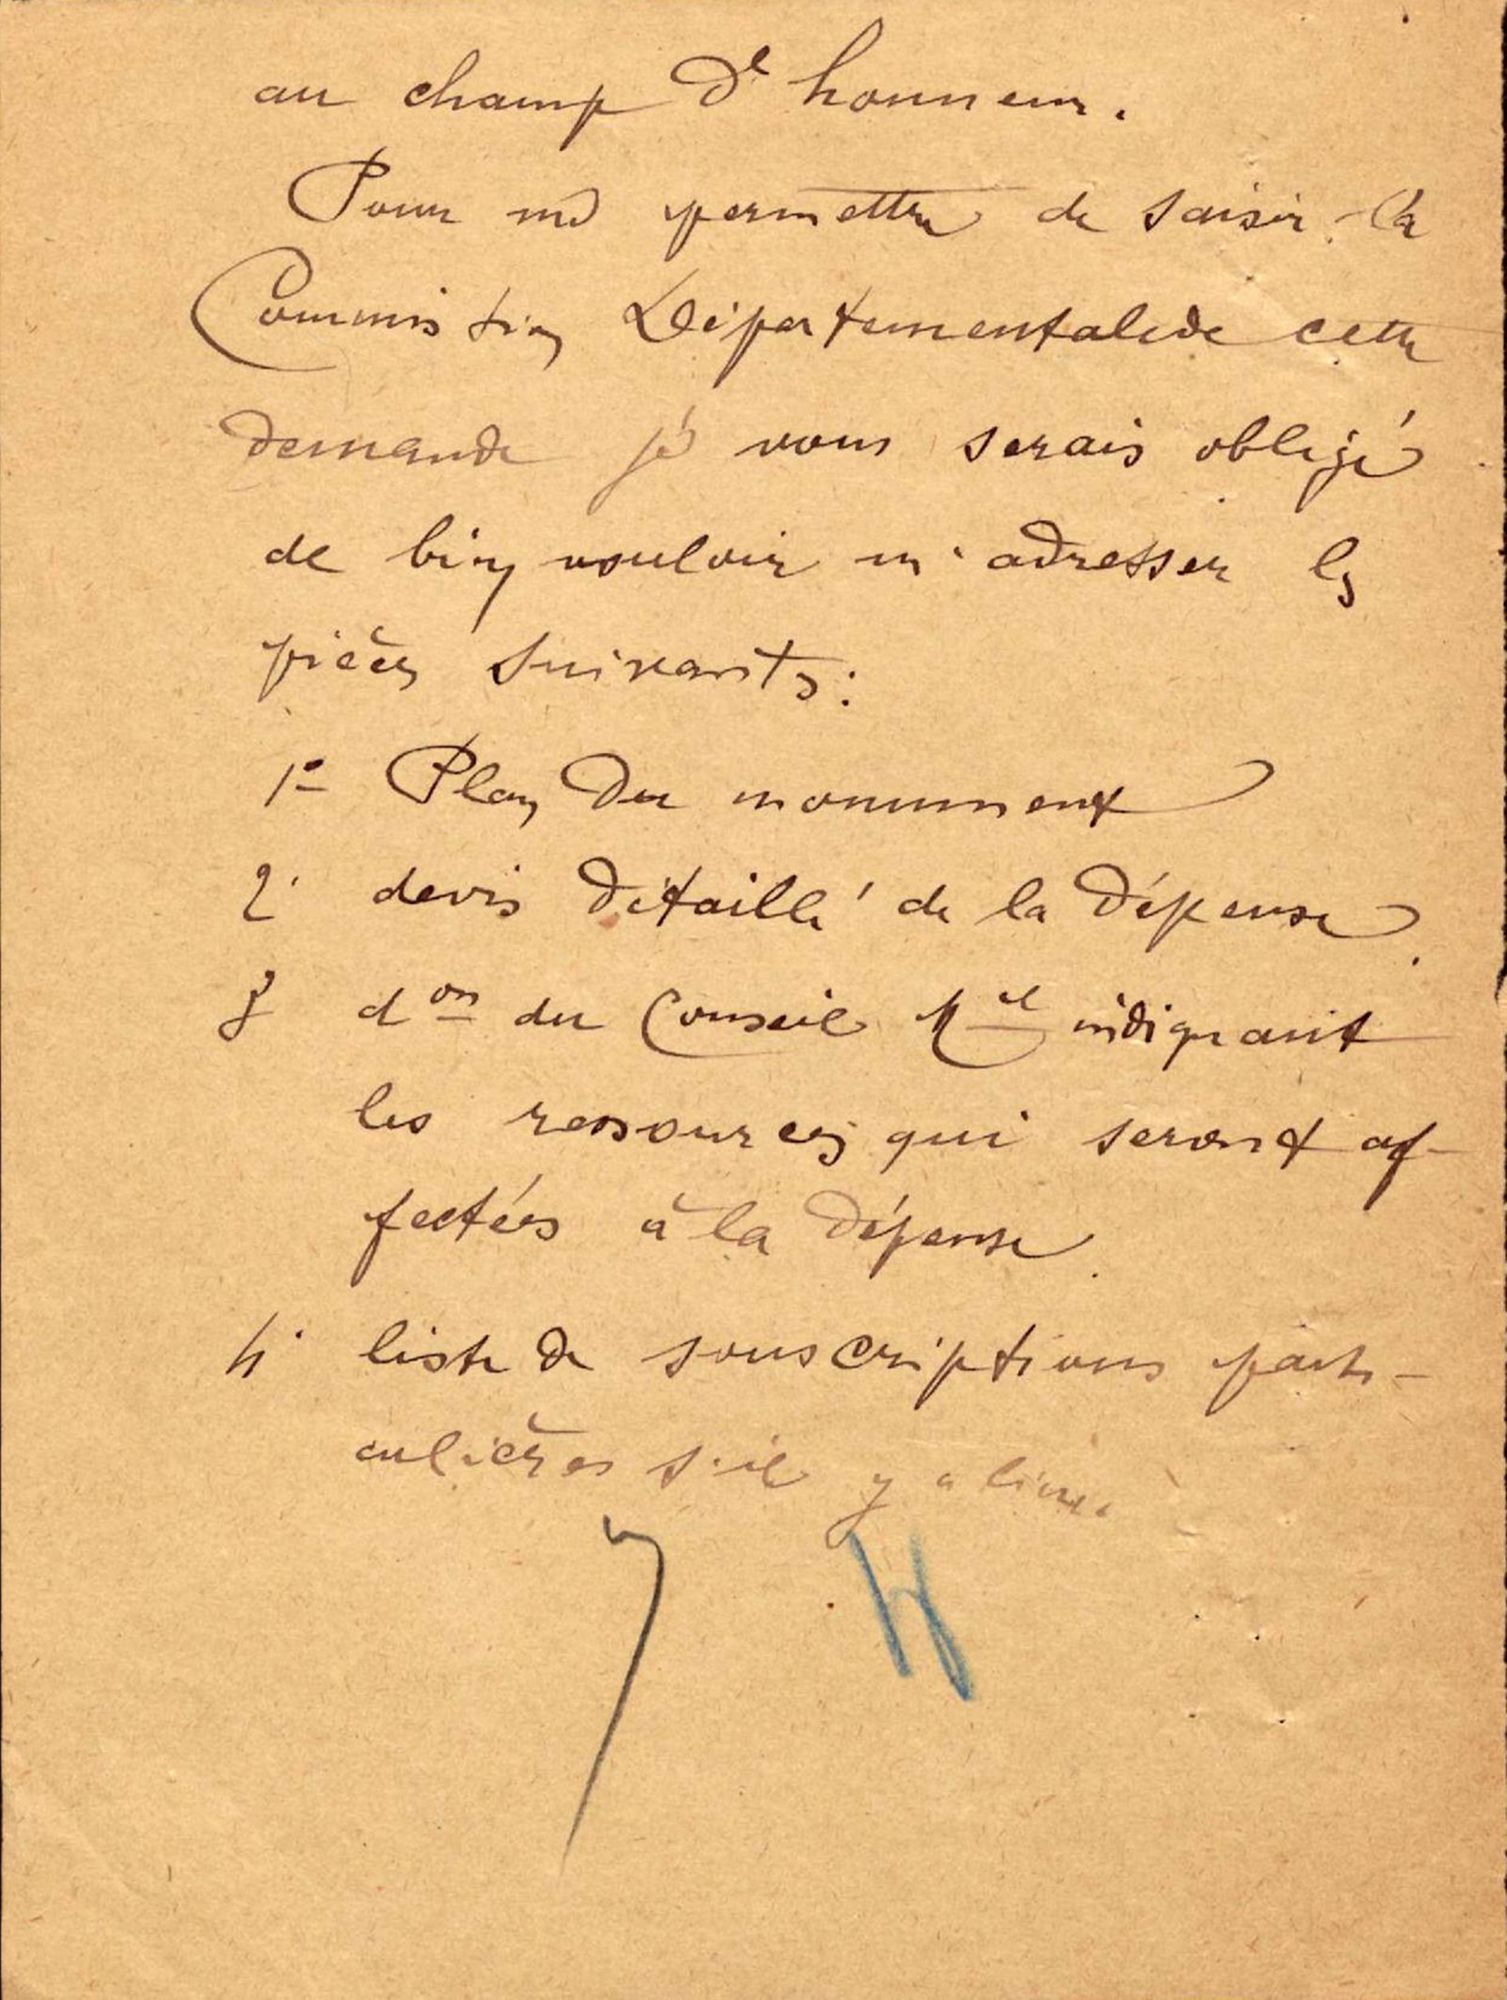 au champ d'honneur.
Pour me permettre de saisir la
Commission Départementale de cette
demande je vous serais obligé
de bien vouloir m'adresser les
pièces suivantes :
1° Plan du monument
2° devis détaillé de la dépense.
3° don du Conseil Mal indiquant
les ressources qui seront af-
fectées à la dépense.
4° liste de souscriptions parti-
culières s'il y a lieu.